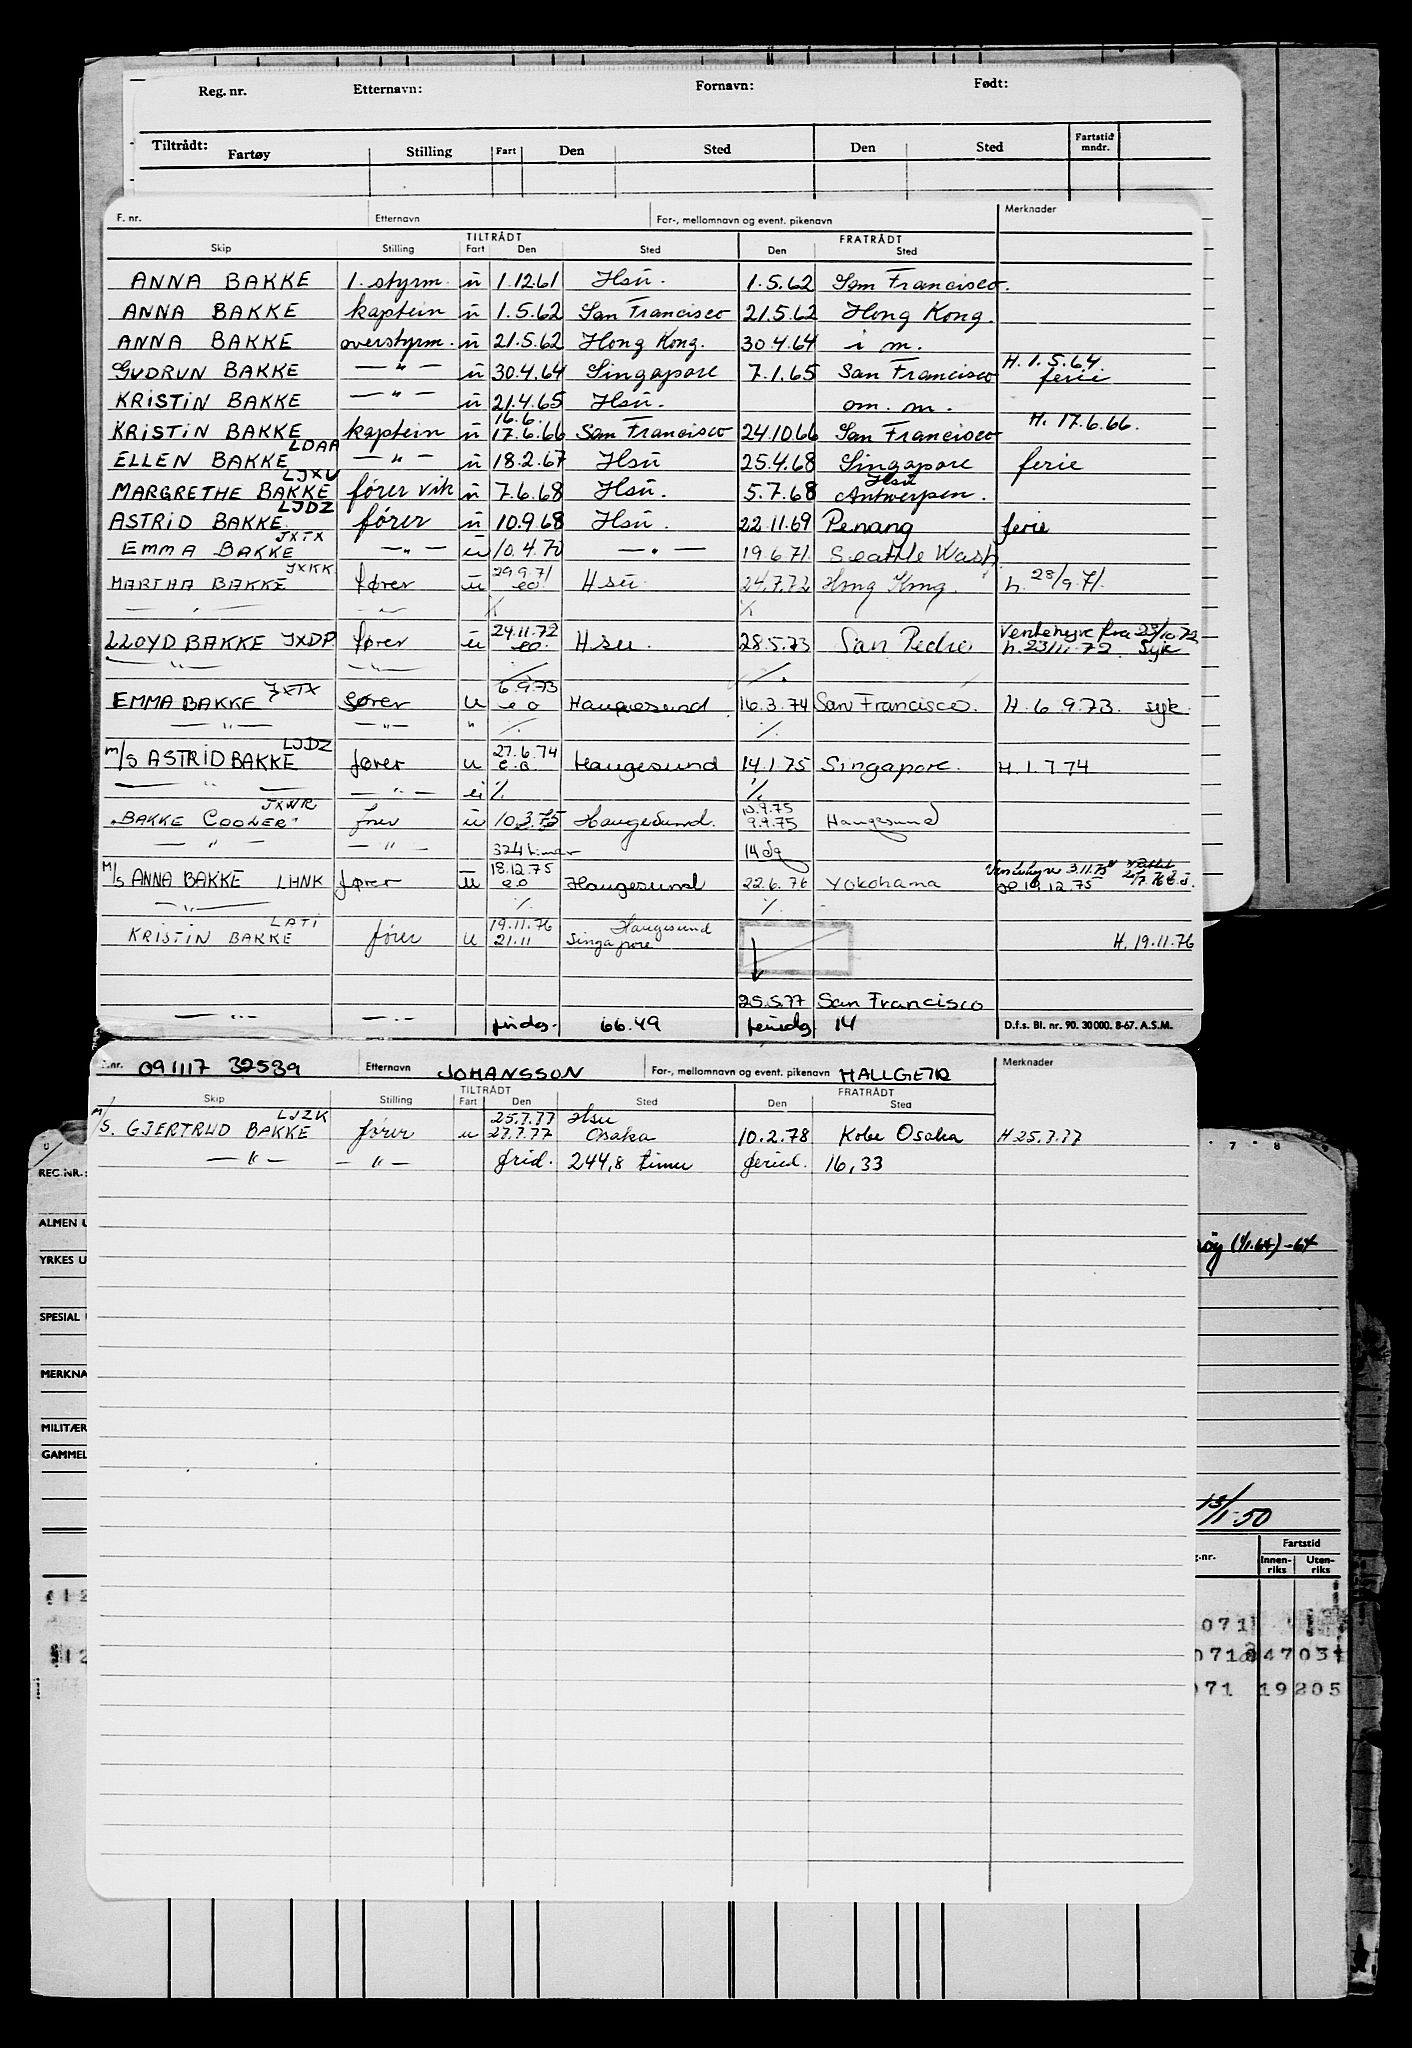 Reg. nr. Etternavn: Fornavn: Født:
Tiltrådt: Fartøy Stilling Fart Den Sted Den Sted Fartstid mndr.
F. nr. Etternavn For-, mellomnavn og event. pikenavn Merknader
TILTRÅDT FRATRÅDT
Skip Stilling Fart Den Sted Den Sted
ANNA BAKKE 1. styrm. u 1.12.61 Hsu. 1.5.62 San Francisco.
ANNA BAKKE kaptein u 1.5.62 San Francisco 21.5.62 Hong Kong.
ANNA BAKKE overstyrm. u 21.5.62 Hong Kong. 30.4.64 i m.
GUDRUN BAKKE — " — u 30.4.64 Singapore 7.1.65 San Francisco H. 1.5.64 ferie
KRISTIN BAKKE — " — u 21.4.65 Hsu. om. m.
KRISTIN BAKKE kaptein u 16.6. 17.6.66 San Francisco 24.10.66 San Francisco H. 17.6.66.
ELLEN BAKKE LDAA — " — u 18.2.67 Hsu 25.4.68 Singapore ferie
MARGRETHE BAKKE LJXU fører vik u 7.6.68 Hsu. 5.7.68 Hsu Antwerpen.
ASTRID BAKKE LJDZ fører u 10.9.68 Hsu. 22.11.69 Penang ferie
EMMA BAKKE JXTX — " — u 10.4.70 — " — 19.6.71 Seattle Wash.
MARTHA BAKKE JXKK fører u 29.9.71 eo. Hsu. 24.7.72 Hong Kong. h. 28/9.71.
— " — — " — % %
LLOYD BAKKE JXDP fører u 24.11.72 eo. Hsu. 28.5.73 San Pedro Ventehyre fra 28/10.72 h. 23/11.72 Syk
— " — — " — % %
EMMA BAKKE JXTX fører u 6.9.73 eo Haugesund 16.3.74 San Francisco. H. 6.9.73. syk
— " — — " — " % %
M/S ASTRID BAKKE LJDZ fører u 27.6.74 e.o. Haugesund 14.1.75 Singapore. H. 1.7.74
— " — — " — % %
"BAKKE COOLER" JXWR fører u 10.3.75 Haugesund. 10.9.75 9.9.75 Haugesund
— " — — " — 324 timer 14 dg
M/S ANNA BAKKE LHNK fører u 18.12.75 eo Haugesund 22.6.76 Yokohama Ventehyre 3.11.75 18.12.75
— " — % %
KRISTIN BAKKE LATI fører u 19.11.76 Haugesund 21.11 Singapore H. 19.11.76
25.5.77 San Francisco
— " — — " — fridg. 66.49 feriedg 14 D.f.s. Bl. nr. 90. 30 000. 8-67. A.S.M.
F.nr. 091117 32539 Etternavn JOHANSSON For-, mellomnavn og event. pikenavn HALLGEIR Merknader
TILTRÅDT FRATRÅDT
Skip Stilling Fart Den Sted Den Sted
M/S. GJERTRUD BAKKE LJZK fører u 25.7.77 Hsu 27.7.77 Osaka 10.2.78 Kobe Osaka H 25.7.77
— " — — " — frid. 244,8 timer feried. 16,33
7 8 9
REG.NR.:
ALMEN U
(1/1.64) -64
YRKES U
SPESIAL
MERKNA
MILITÆR
GAMMEL
13/1-50
g.-nr. Fartstid
Innen-riks Uten-riks
071
071 4703
071 19205